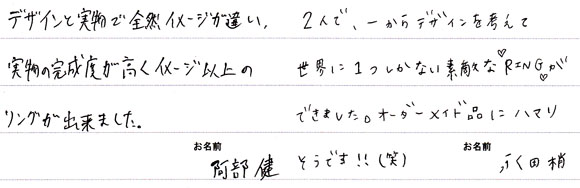 デザインと実物で全然イメージが違い、
実物の完成度が高くイメージ以上の
リングが出来ました。
お名前
阿部 健
2人で、一からデザインを考えて
世界に1つしかない素敵な♡RING♡が
できました。オーダーメイド品にハマり
そうです!!(笑)
お名前
田 梢